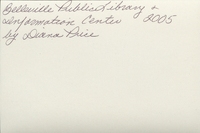 Belleville Public Library &
Information Center 2005
by Diana Price